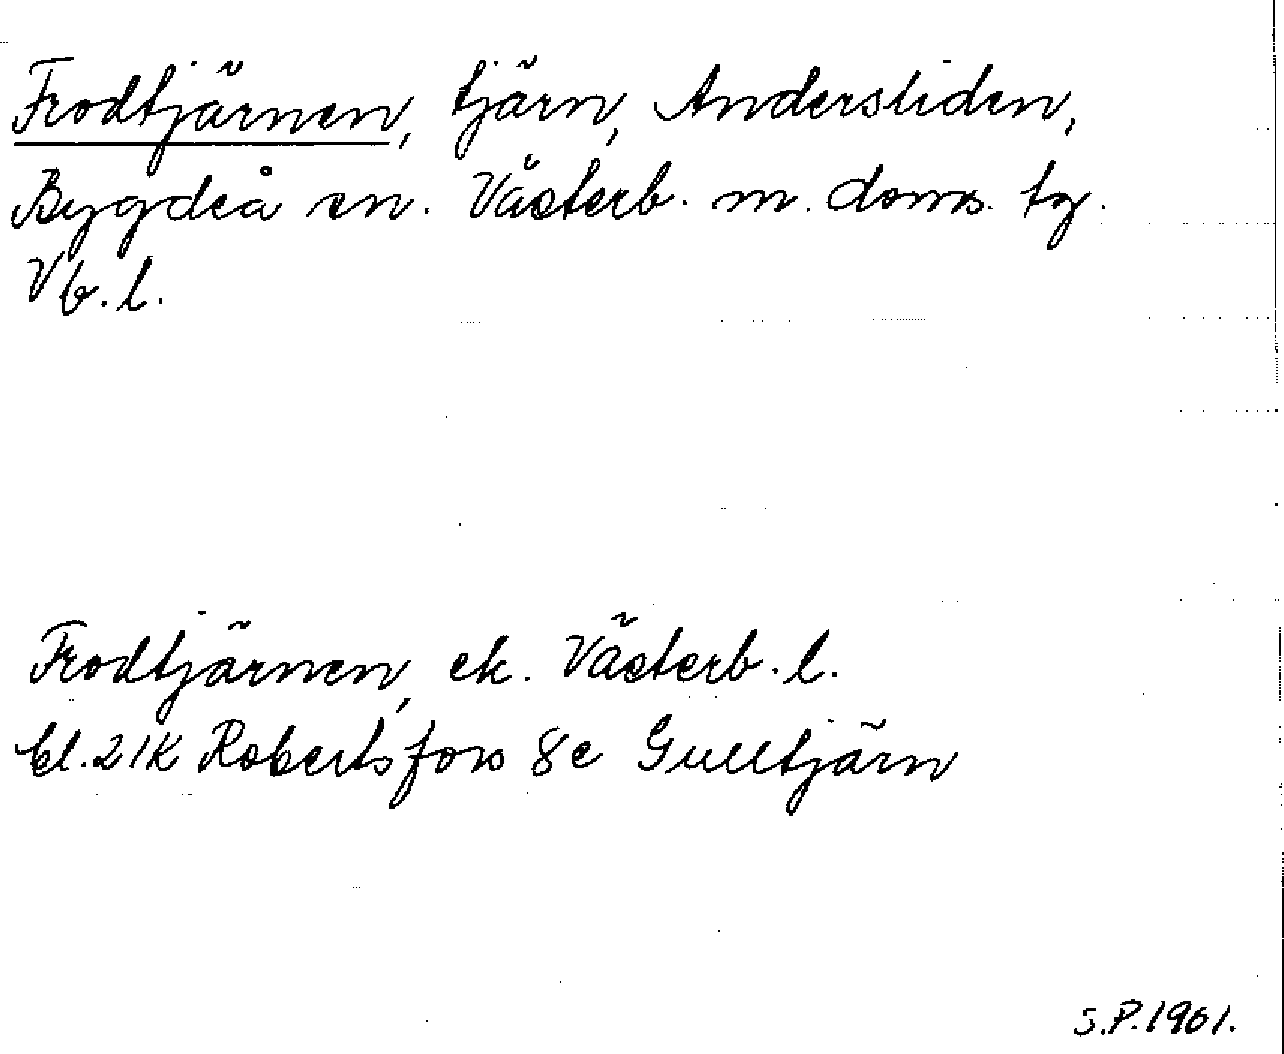 Frodtjärnen, tjärn, Andersliden,
Bygdeå sn. Västerb. m. doms. tg.
Vb. l.
Frodtjärnen, ek. Västerb. l.
bl. 21K Robertsfors 8c Gulltjärn
S.P. 1961.